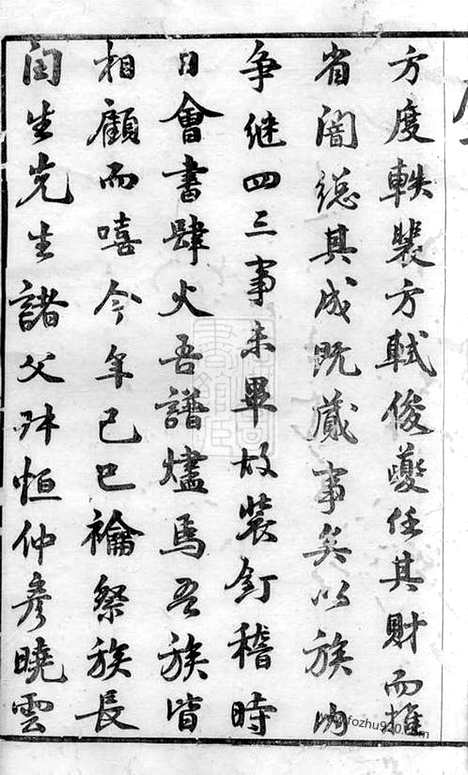 方度軼裴方軾俊夔任其財而推
省闇總其成既蕆事矣以族內
争継四三事未畢故裝釘稽時
日會書肆火吾譜燼焉吾族皆
相顧而嘻今年己巳禴祭族長
閏生先生諸父叔恒仲彦曉雲
fozhu920.com